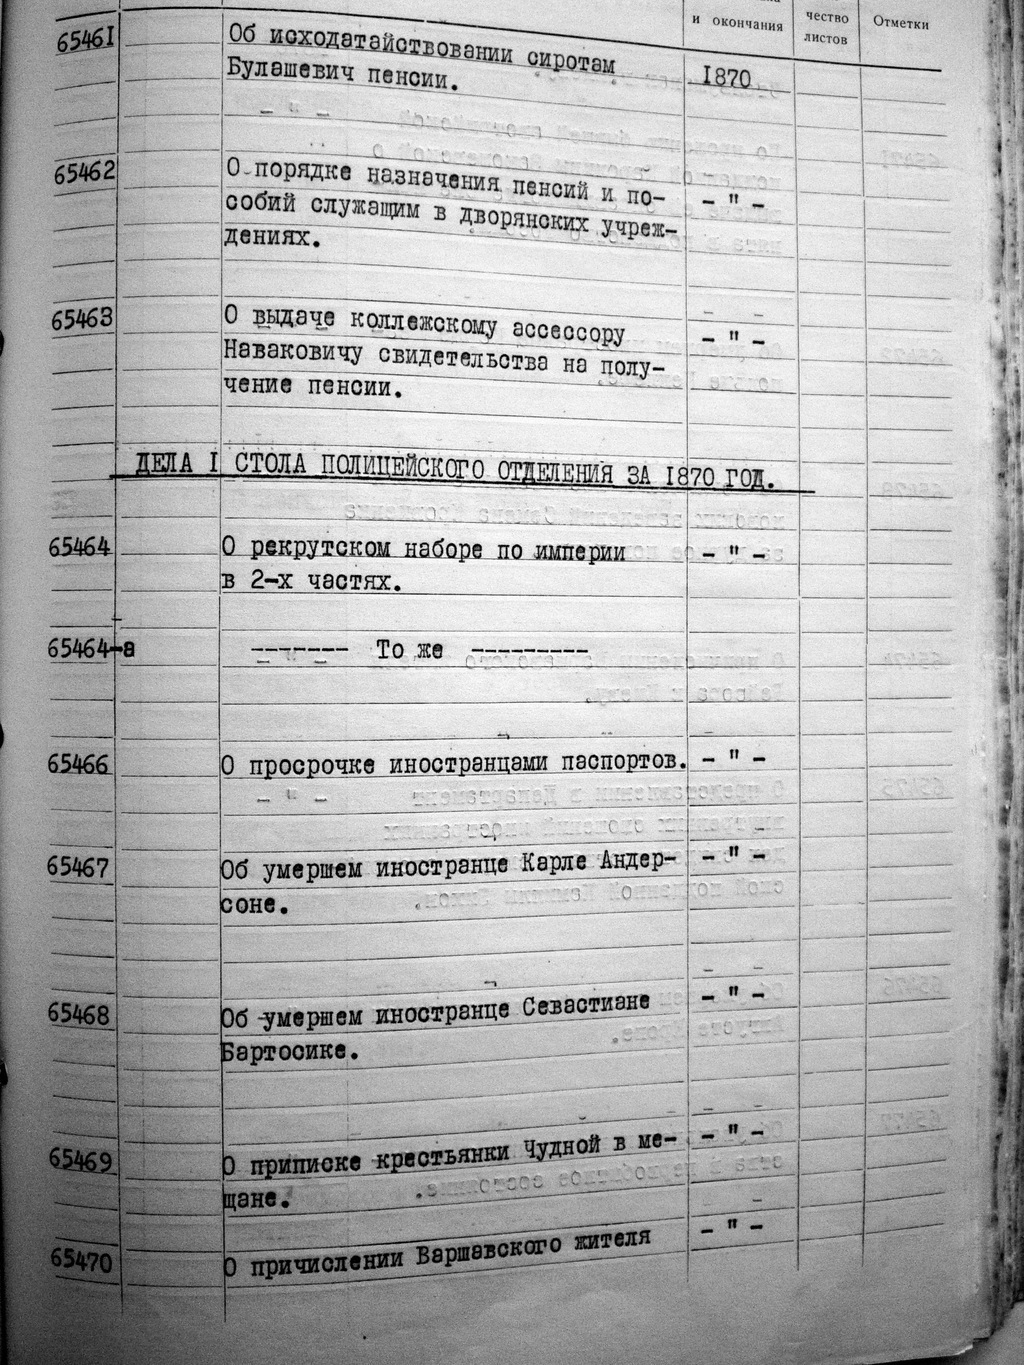 и окончания
чество
листов
Отметки
65461 Об исходатайствовании сиротам 1870
Булашевич пенсии.
65462 О порядке назначения пенсий и по- - " -
собий служащим в дворянских учреж-
дениях.
65463 О выдаче коллежскому ассессору - " -
Наваковичу свидетельства на полу-
чение пенсии.
ДЕЛА I СТОЛА ПОЛИЦЕЙСКОГО ОТДЕЛЕНИЯ ЗА 1870 ГОД.
65464 О рекрутском наборе по империи - " -
в 2-х частях.
65464-а ------- То же ---------
65466 О просрочке иностранцами паспортов. - " -
65467 Об умершем иностранце Карле Андер- - " -
соне.
65468 Об умершем иностранце Севастиане - " -
Бартосике.
65469 О приписке крестьянки Чудной в ме- - " -
щане.
65470 О причислении Варшавского жителя - " -